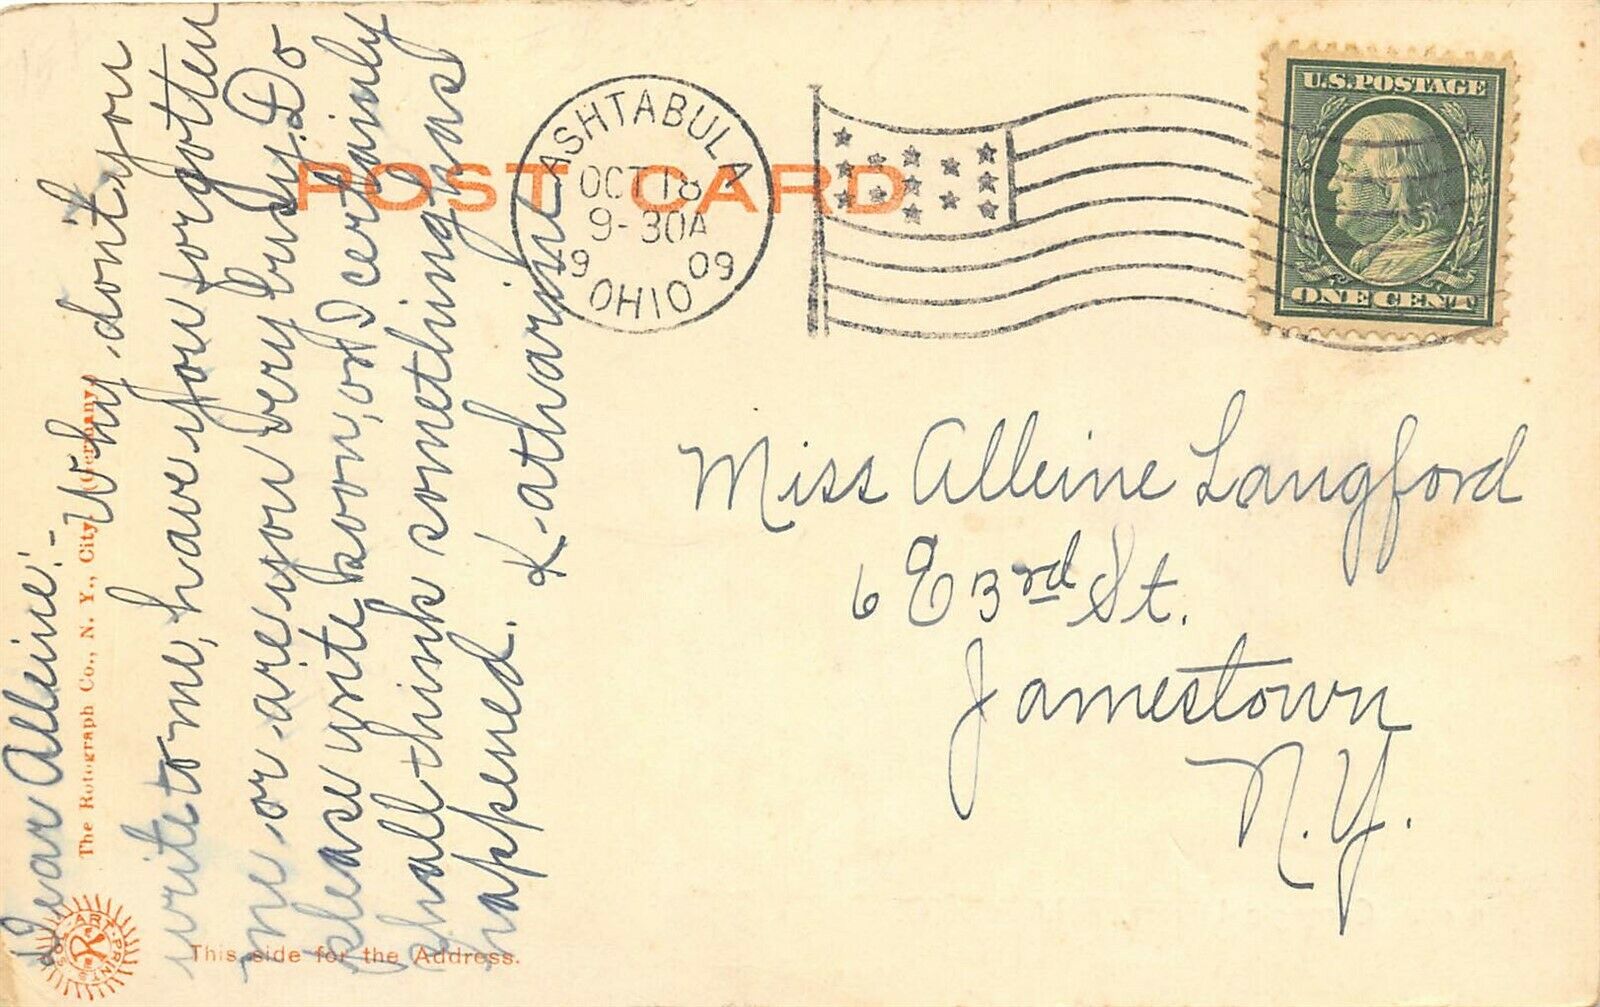 Dear Alleine:-
Why don't you
write to me, have you forgotten
me or are you very busy. Do
please write soon, or I certainly
shall think something has
happened. Katharine
POST CARD
ASHTABULA
OCT 18
9-30A
19 09
OHIO
U.S. POSTAGE
ONE CENT
Miss Alleine Langford
6 E 3rd St.
Jamestown
N.Y.
The Rotograph Co., N. Y., City. (Germany)
This side for the Address.